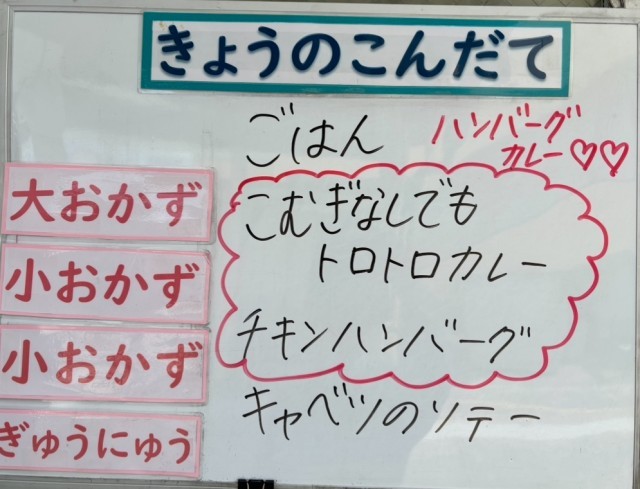 きょうのこんだて
ごはん
ハンバーグ
カレー♡♡
大おかず
こむぎなしでも
トロトロカレー
小おかず
チキンハンバーグ
小おかず
キャベツのソテー
ぎゅうにゅう